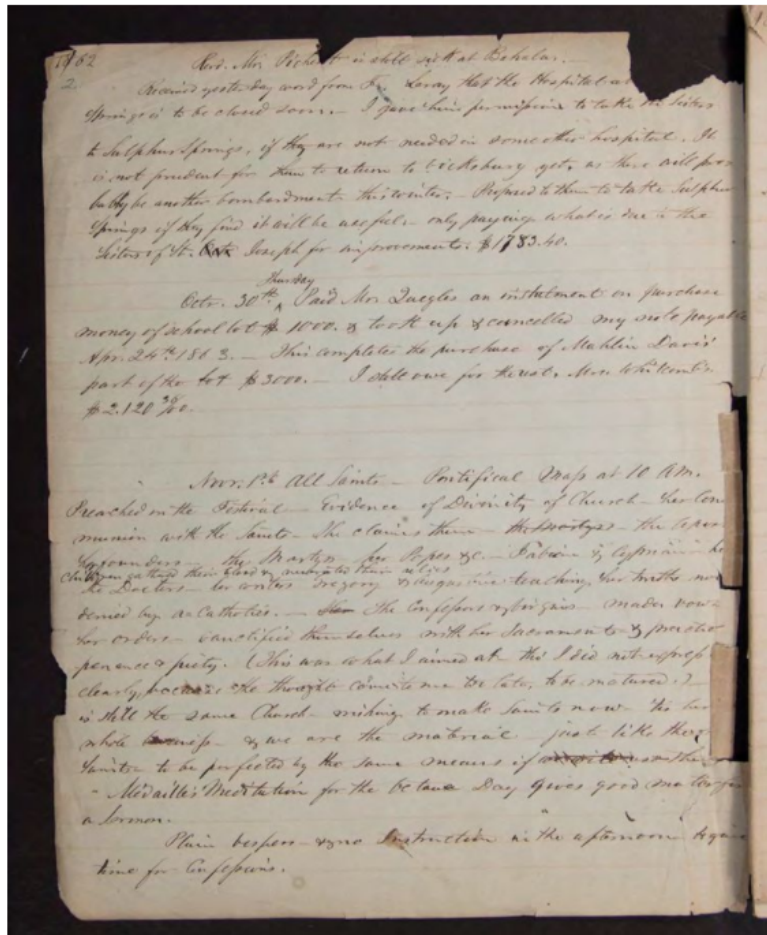 1862
2. Revd. Mr. Picherit is still sick at Bohalas.
Received yesterday word from Fr. Leray that the Hospital at
Springs is to be closed soon. — I gave him permission to take the Sisters
to Sulphur Springs, if they are not needed in some other hospital. It
is not prudent for them to return to Vicksburg yet, as there will pro
bably be another bombardment this winter. — Proposed to them to take Sulphur
Springs if they find it will be useful — only paying what is due to the
Sisters of St. Joseph for improvements. $1783.40.
Thursday
Octr. 30th, Paid Mrs Quegles an instalment on purchase
money of school lot $ 1000. & took up & cancelled my note payable
Apr. 24th 1863. — This completes the purchase of Mahlin Davis'
part of the lot $3000. — I still owe for the rest, Mrs. Whitcomb's
$2.120 30/00.
Novr. 1st All Saints — Pontifical Mass at 10 A.M.
Preached on the Festival — Evidence of Divinity of Church — her Com
munion with the Saints — She claims them — the Martyrs — the
her founders — the Martyrs — her Popes &c. — Fabian & Cyprian —
children gathered their blood & venerated their relics
the Doctors — her writers Gregory & Augustine teaching her truths now
denied by a-Catholics. — The Confessors & virgins — made vows
her orders — sanctified themselves with her Sacraments & practice
penance & piety. (This was what I aimed at tho' I did not express
clearly, because the thought came to me too late, to be matured.)
is still the same Church — wishing to make Saints now — 'tis her
whole business — & we are the material — just like these
Saints — to be perfected by the same means if
— Médaille's Meditation for the Octave Day gives good matter for
a Sermon.
Plain Vespers — & no Instruction in the afternoon to give
time for Confessions.